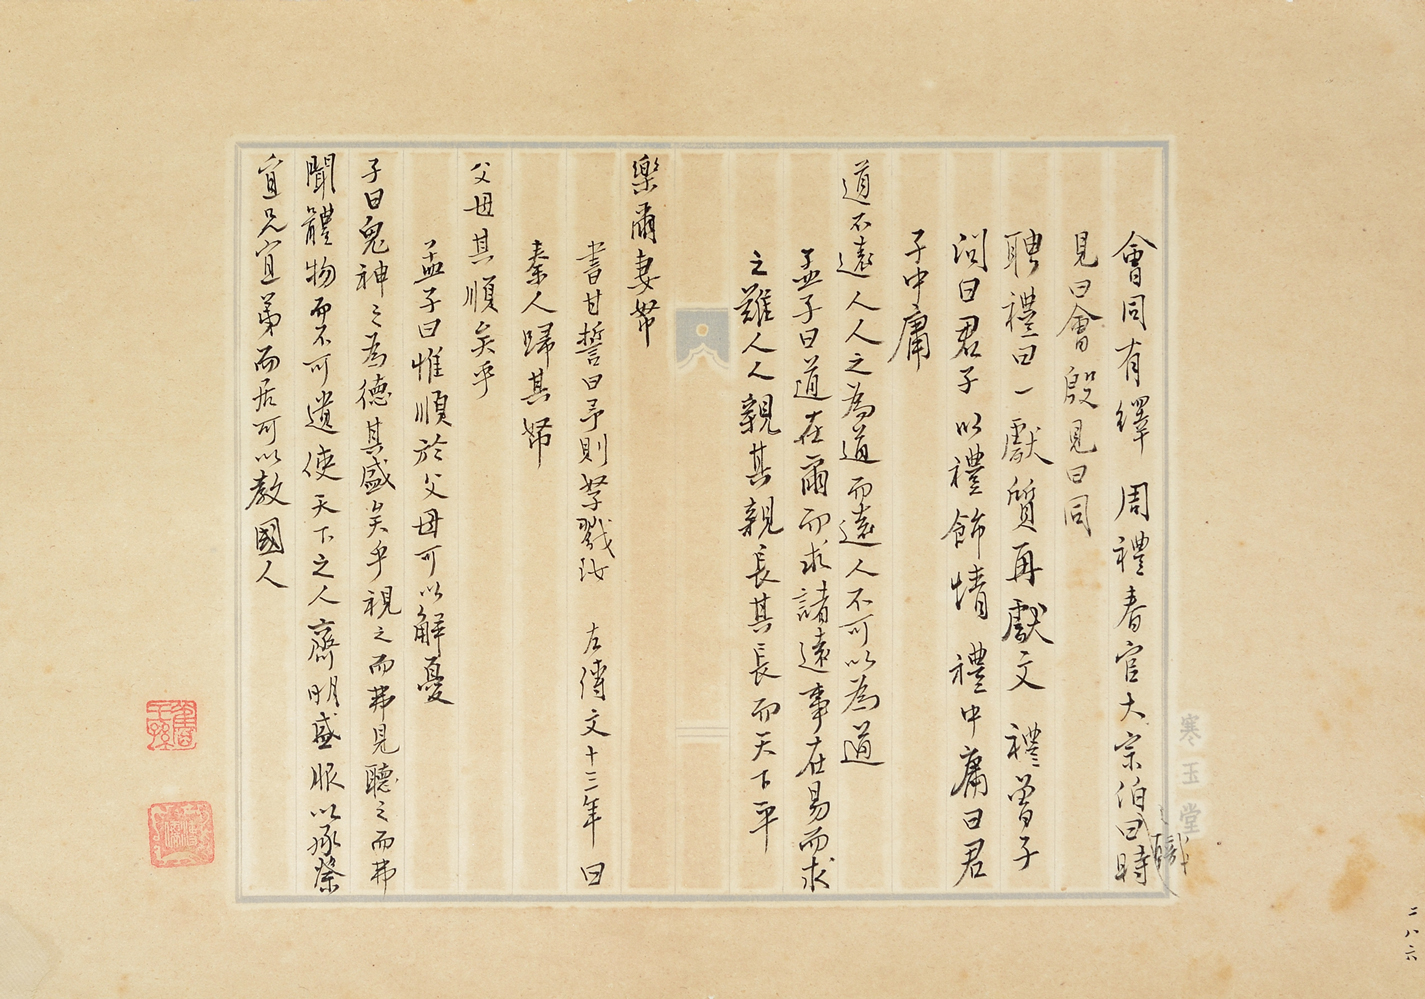 會同有繹 周禮春官大宗伯曰時
見曰會殷見曰同
聘禮曰一獻質再獻文 禮曾子
問曰君子以禮飾情 禮中庸曰君
子中庸
道不遠人人之為道而遠人不可以為道
孟子曰道在爾而求諸遠事在易而求
之難人人親其親長其長而天下平
樂爾妻帑
書甘誓曰予則孥戮汝 左傳文十三年曰
秦人歸其帑
父母其順矣乎
孟子曰惟順於父母可以解憂
子曰鬼神之為德其盛矣乎視之而弗見聽之而弗
聞體物而不可遺使天下之人齊明盛服以承祭
宜兄宜弟而后可以教國人
寒玉堂
舊王孫
二八六